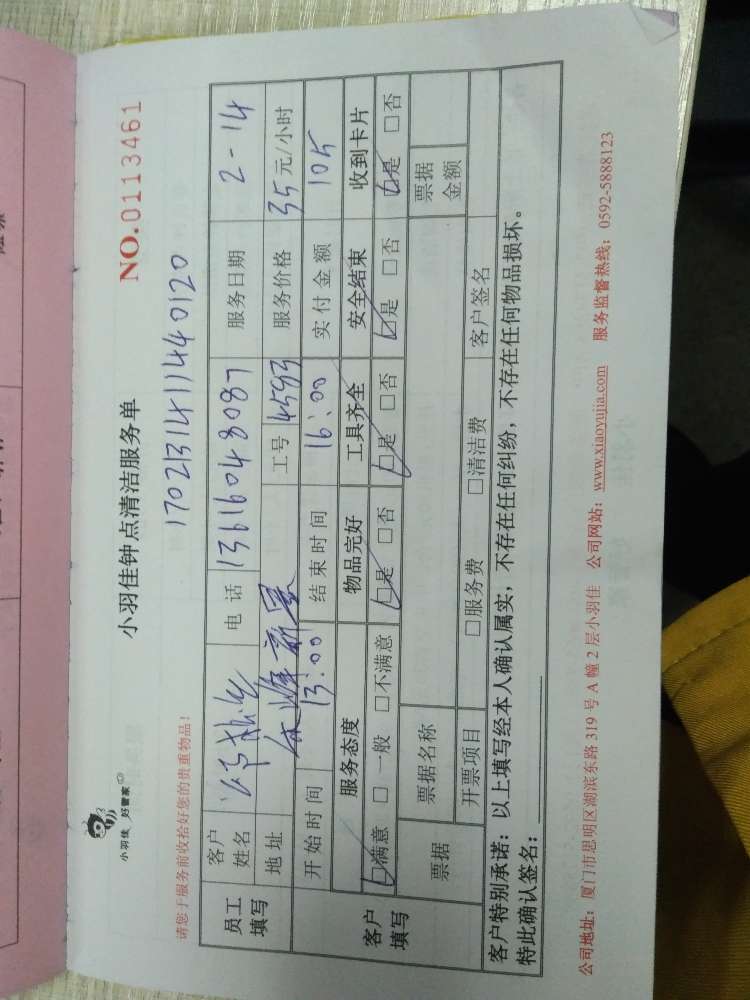 小羽佳 好管家
小羽佳钟点清洁服务单
NO.0113461
请您于服务前收拾好您的贵重物品！
17021314114440120
员工填写
客户姓名
电话 13616048087
服务日期 2-14
地址
工号 4593
服务价格 35元/小时
开始时间 13:00
结束时间 16:00
实付金额 105
客户填写
服务态度 物品完好 工具齐全 安全结束 收到卡片
☑满意 □一般 □不满意 ☑是 □否 ☑是 □否 ☑是 □否 ☑是 □否
票据
票据名称
票据金额
开票项目 □服务费 □清洁费 客户签名
客户特别承诺：以上填写经本人确认属实，不存在任何纠纷，不存在任何物品损坏。
特此确认签名：
公司地址：厦门市思明区湖滨东路319号A幢2层小羽佳 公司网站：www.xiaoyujia.com 服务监督热线：0592-5888123